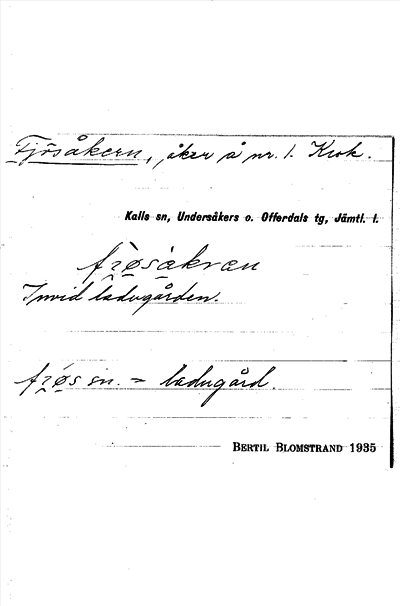 Fjösåkern, åker å nr. 1. Krok.
Kalls sn, Undersåkers o. Offerdals tg, Jämtl. l.
fɪ̯øsåkran
Invid ladugården.
fɪ̯øs sn. = ladugård.
BERTIL BLOMSTRAND 1935